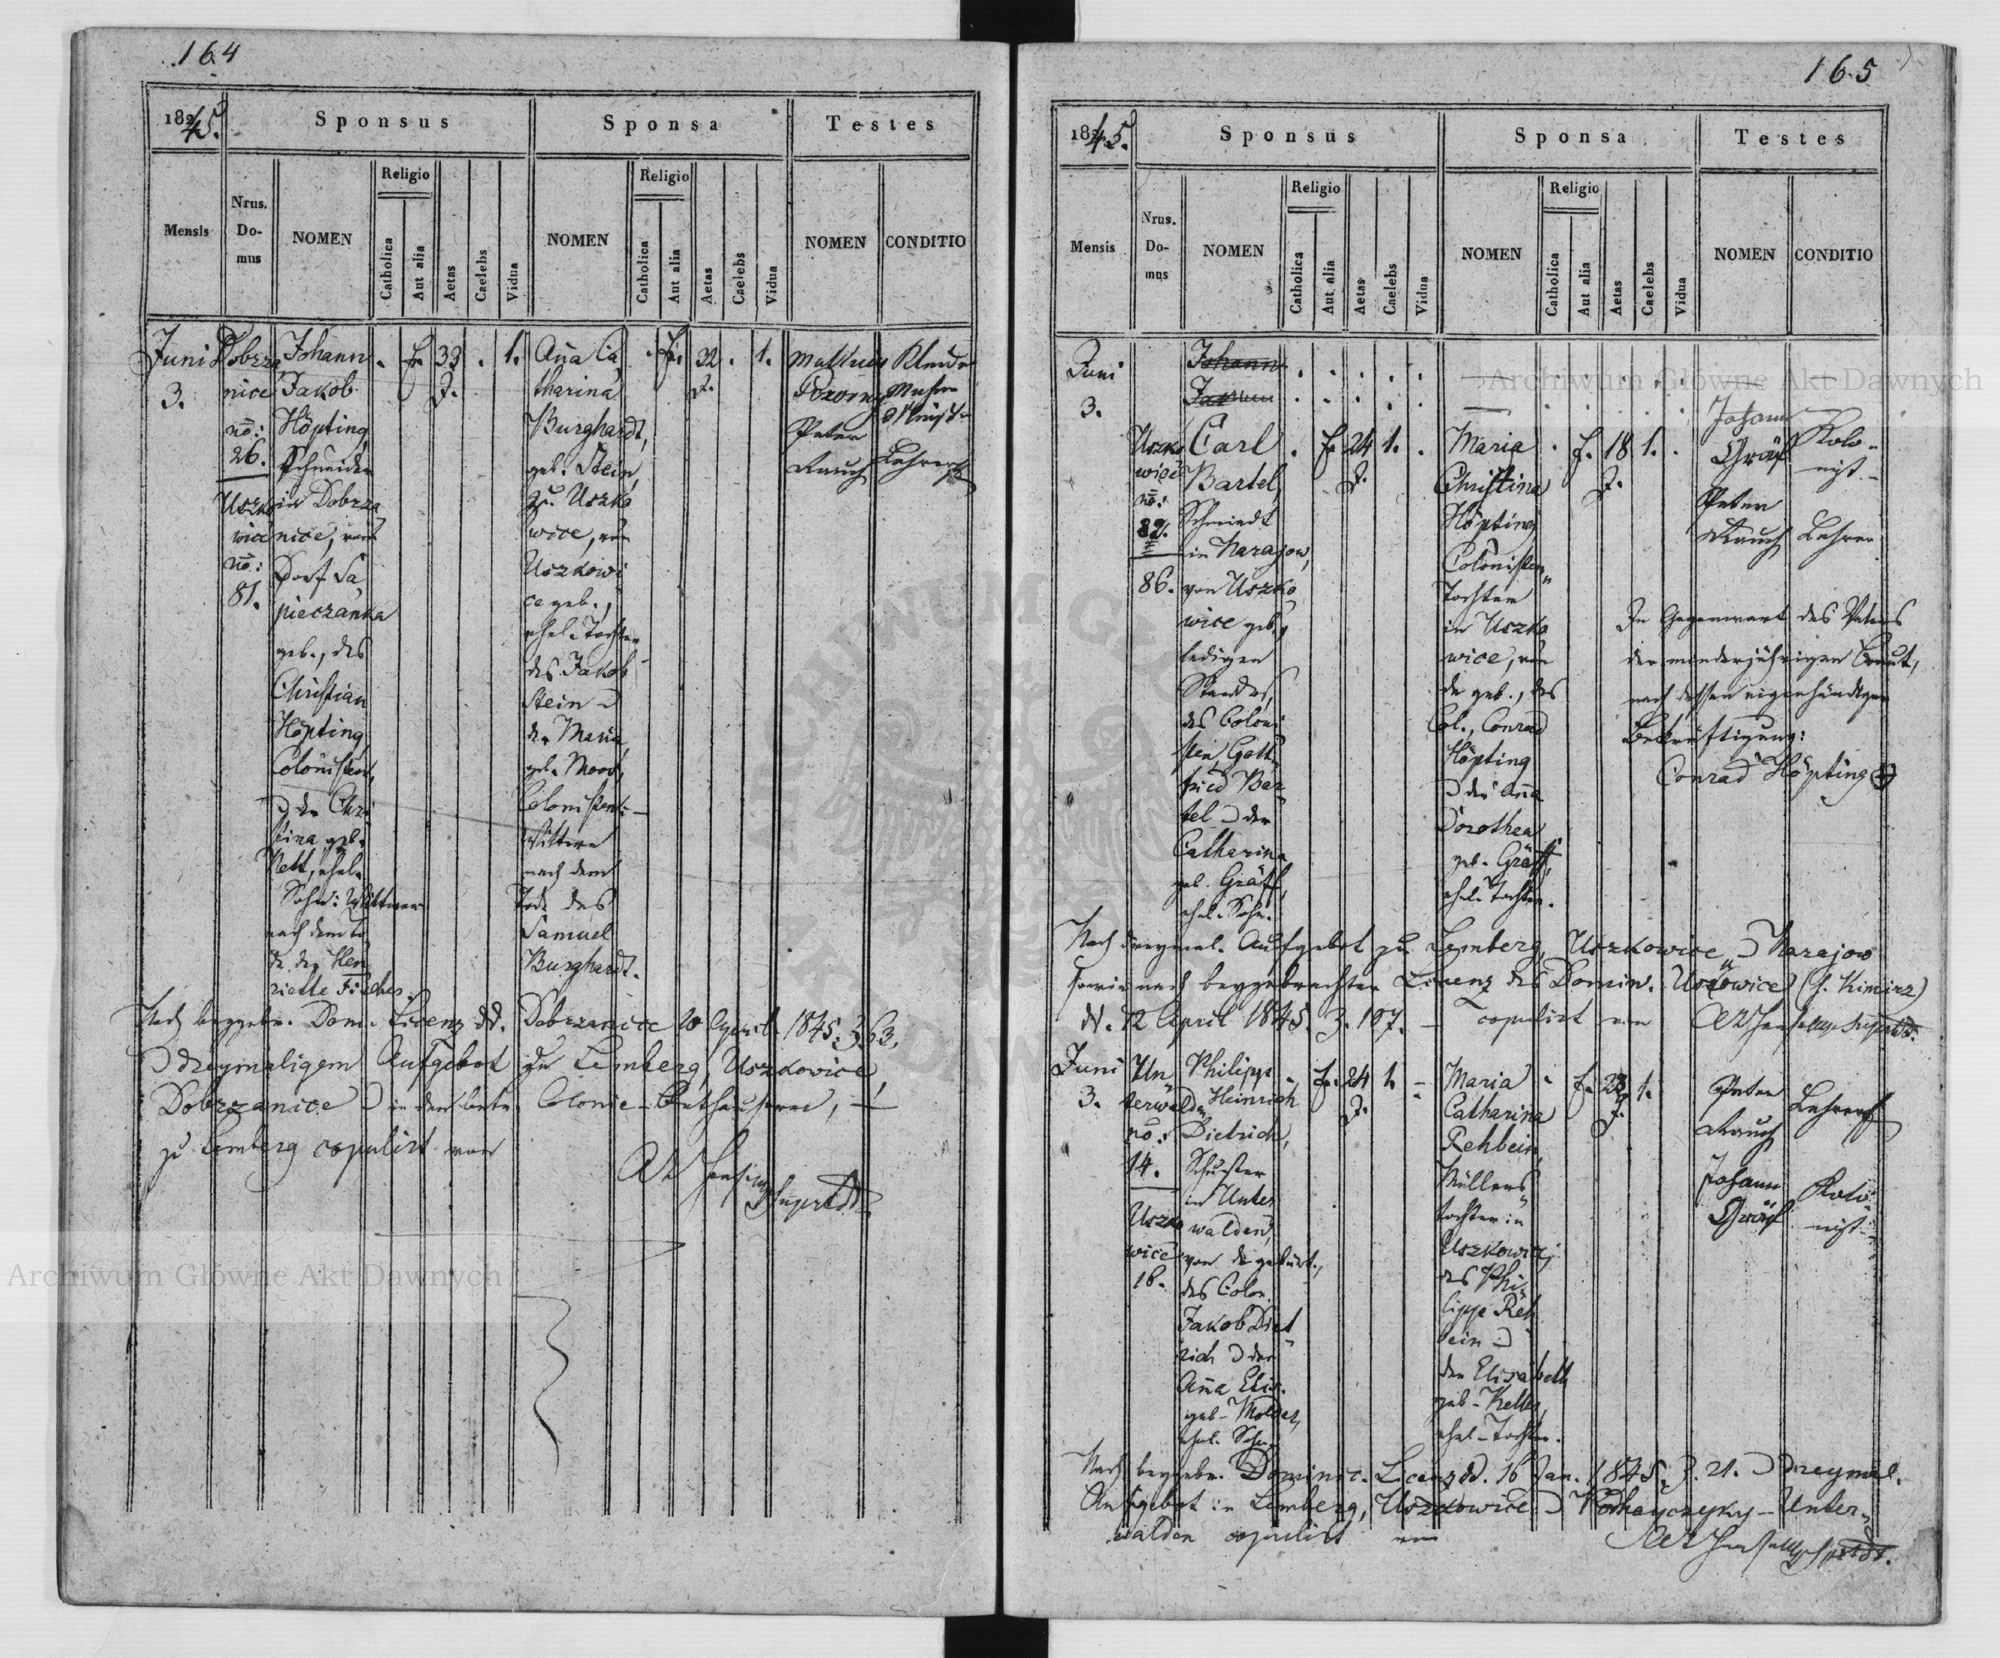 164
1845.
Sponsus
Sponsa
Testes
Mensis
Nrus. Do- mus
NOMEN
Religio
Catholica
Aut alia
Aetas
Caelebs
Vidua
NOMEN
Religio
Catholica
Aut alia
Aetas
Caelebs
Vidua
NOMEN
CONDITIO
Juni
3.
Dobrza
nice
no:
26.
Uszko
wice
no:
81.
Johann
Jakob
Höpting,
Schneider
in Dobrza
nice, von
Dorf Sa
pieczanka
geb., des
Christian
Höpting
Colonisten,
der Chri
stina geb.
Nett, ehel.
Sohn: Wittwer
nach dem To
de der Hen
riette Fischer.
E. 33 J. 1.
Anna Ca
tharina
Burghardt,
geb. Stein,
zu Uszko
wice, von
Uszkowi
ce geb.,
ehel. Tochter
des Jakob
Stein
der Maria,
geb. Moos,
Colonisten:
Wittwe
nach dem
Tode des
Samuel
Burghardt.
E. 32 J. 1.
Peter
Rauch
Lehrer
Nach beygebr. Dom. Licenz dd. Dobrzanice 20 April 1845. 363.
dreymaligem Aufgebot zu Lemberg, Uszkowice,
Dobrzanice in der Colonie
zu Lemberg copulirt von
165
1845.
Sponsus
Sponsa
Testes
Mensis
Nrus. Do- mus
NOMEN
Religio
Catholica
Aut alia
Aetas
Caelebs
Vidua
NOMEN
Religio
Catholica
Aut alia
Aetas
Caelebs
Vidua
NOMEN
CONDITIO
Juni
3.
Johann
Uszko
wice
no:
32.
86.
Carl
Bartel,
Schmiedt
in Narajow,
von Uszko
wice geb.,
ledigen
Standes,
des Coloni
sten Gott
fried Bar
tel der
Catharina
geb. Gräff,
ehel. Sohn.
E. 24 J. 1.
Maria
Christina
Höpting
Colonisten
Tochter
in Uszko
wice, von
da geb., des
Col., Conrad
Höpting
der Anna
Dorothea
geb. Gräff,
ehel. Tochter.
E. 18 J. 1.
Johann
Gräf
Kolo
nist
Peter
Rauch
Lehrer
In Gegenwart des Vaters
der minderjährigen Braut,
nach dessen eigenhändiger
Bekräftigung:
Conrad Höpting
Nach dreymal. Aufgebot zu Lemberg, Uszkowice Narajow
sowie nach beygebrachter Licenz des Domin. Uszkowice
dd. 12 April 1845. Z. 107. copulirt von
Juni
3.
Un
terwalden
no:
14.
Uszko
wice
16.
Philipp
Heinrich
Dietrich,
Schuster
in Unter
walden,
von da gebürt.,
des Colon.
Jakob Diet
rich der
Anna Elis.
geb. Molder,
ehel. Sohn.
E. 24 J. 1.
Maria
Catharina
Rehbein,
Müllers
tochter in
Uszkowice,
des Phi
lipp Reh
bein
der Elisabeth
geb. Keller,
ehel. Tochter.
E. 23 J. 1.
Peter
Rauch
Lehrer
Johann
Gräf
Kolo
nist
Nach beygebr. Dominic. Licenz dd. 16 Jan. 1845. Z. 21. dreymal.
Aufgebot in Lemberg, Uszkowice Unter
walden copulirt von
Archiwum Główne Akt Dawnych
Archiwum Główne Akt Dawnych